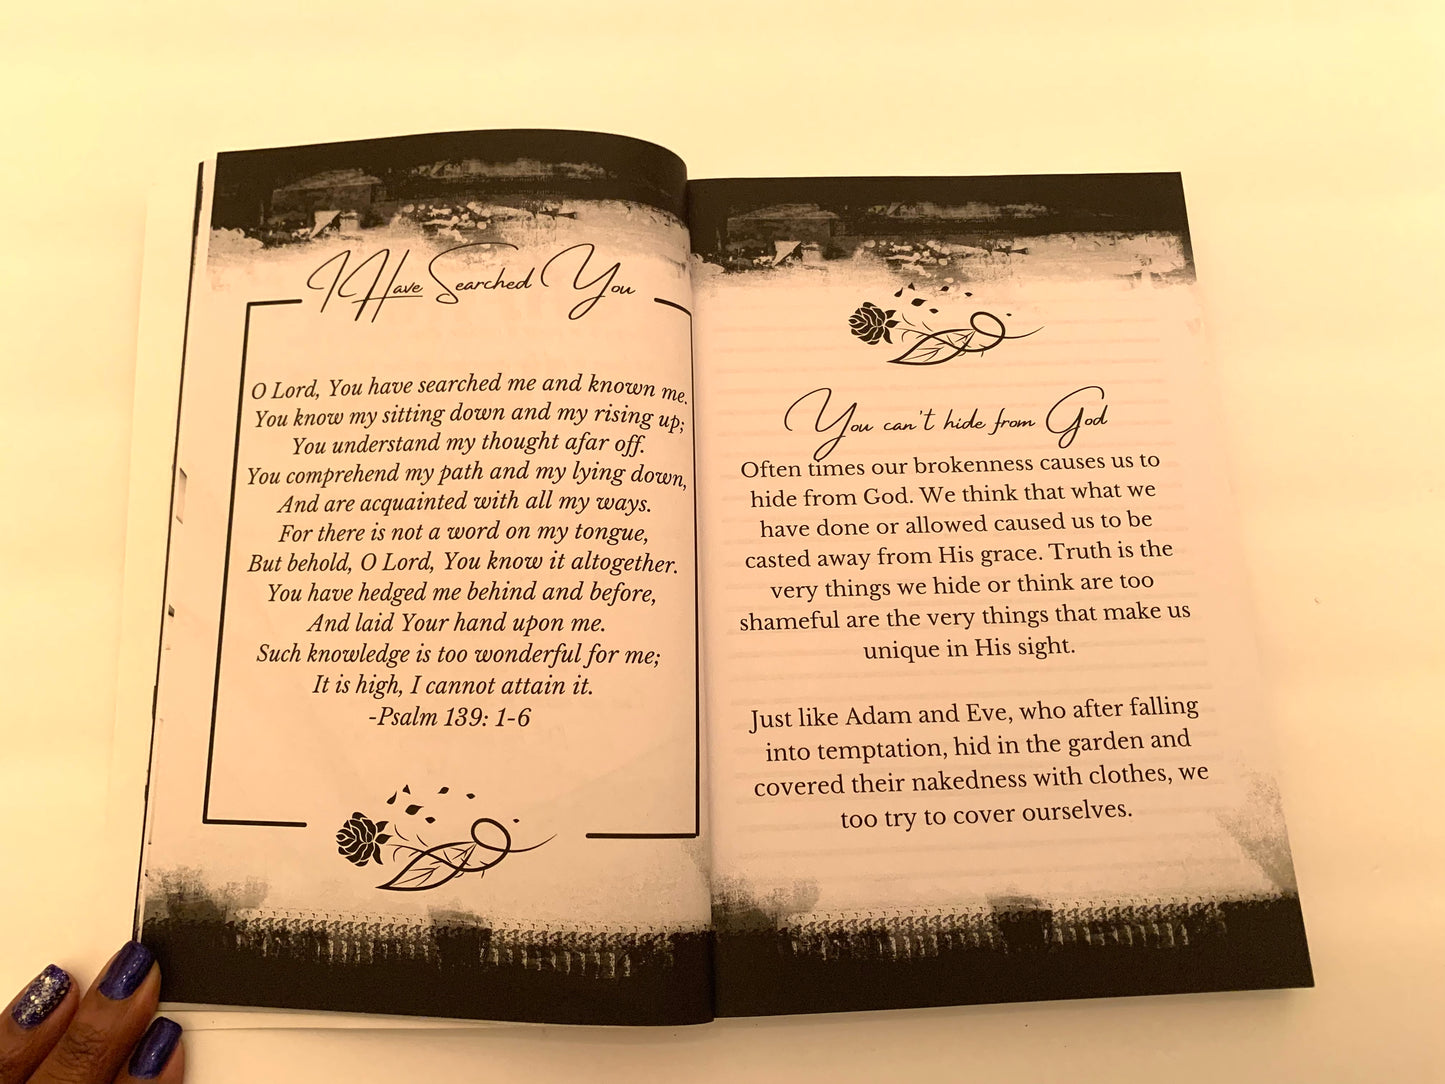 I Have Searched You
O Lord, You have searched me and known me.
You know my sitting down and my rising up;
You understand my thought afar off.
You comprehend my path and my lying down,
And are acquainted with all my ways.
For there is not a word on my tongue,
But behold, O Lord, You know it altogether.
You have hedged me behind and before,
And laid Your hand upon me.
Such knowledge is too wonderful for me;
It is high, I cannot attain it.
-Psalm 139: 1-6
You can't hide from God
Often times our brokenness causes us to
hide from God. We think that what we
have done or allowed caused us to be
casted away from His grace. Truth is the
very things we hide or think are too
shameful are the very things that make us
unique in His sight.
Just like Adam and Eve, who after falling
into temptation, hid in the garden and
covered their nakedness with clothes, we
too try to cover ourselves.